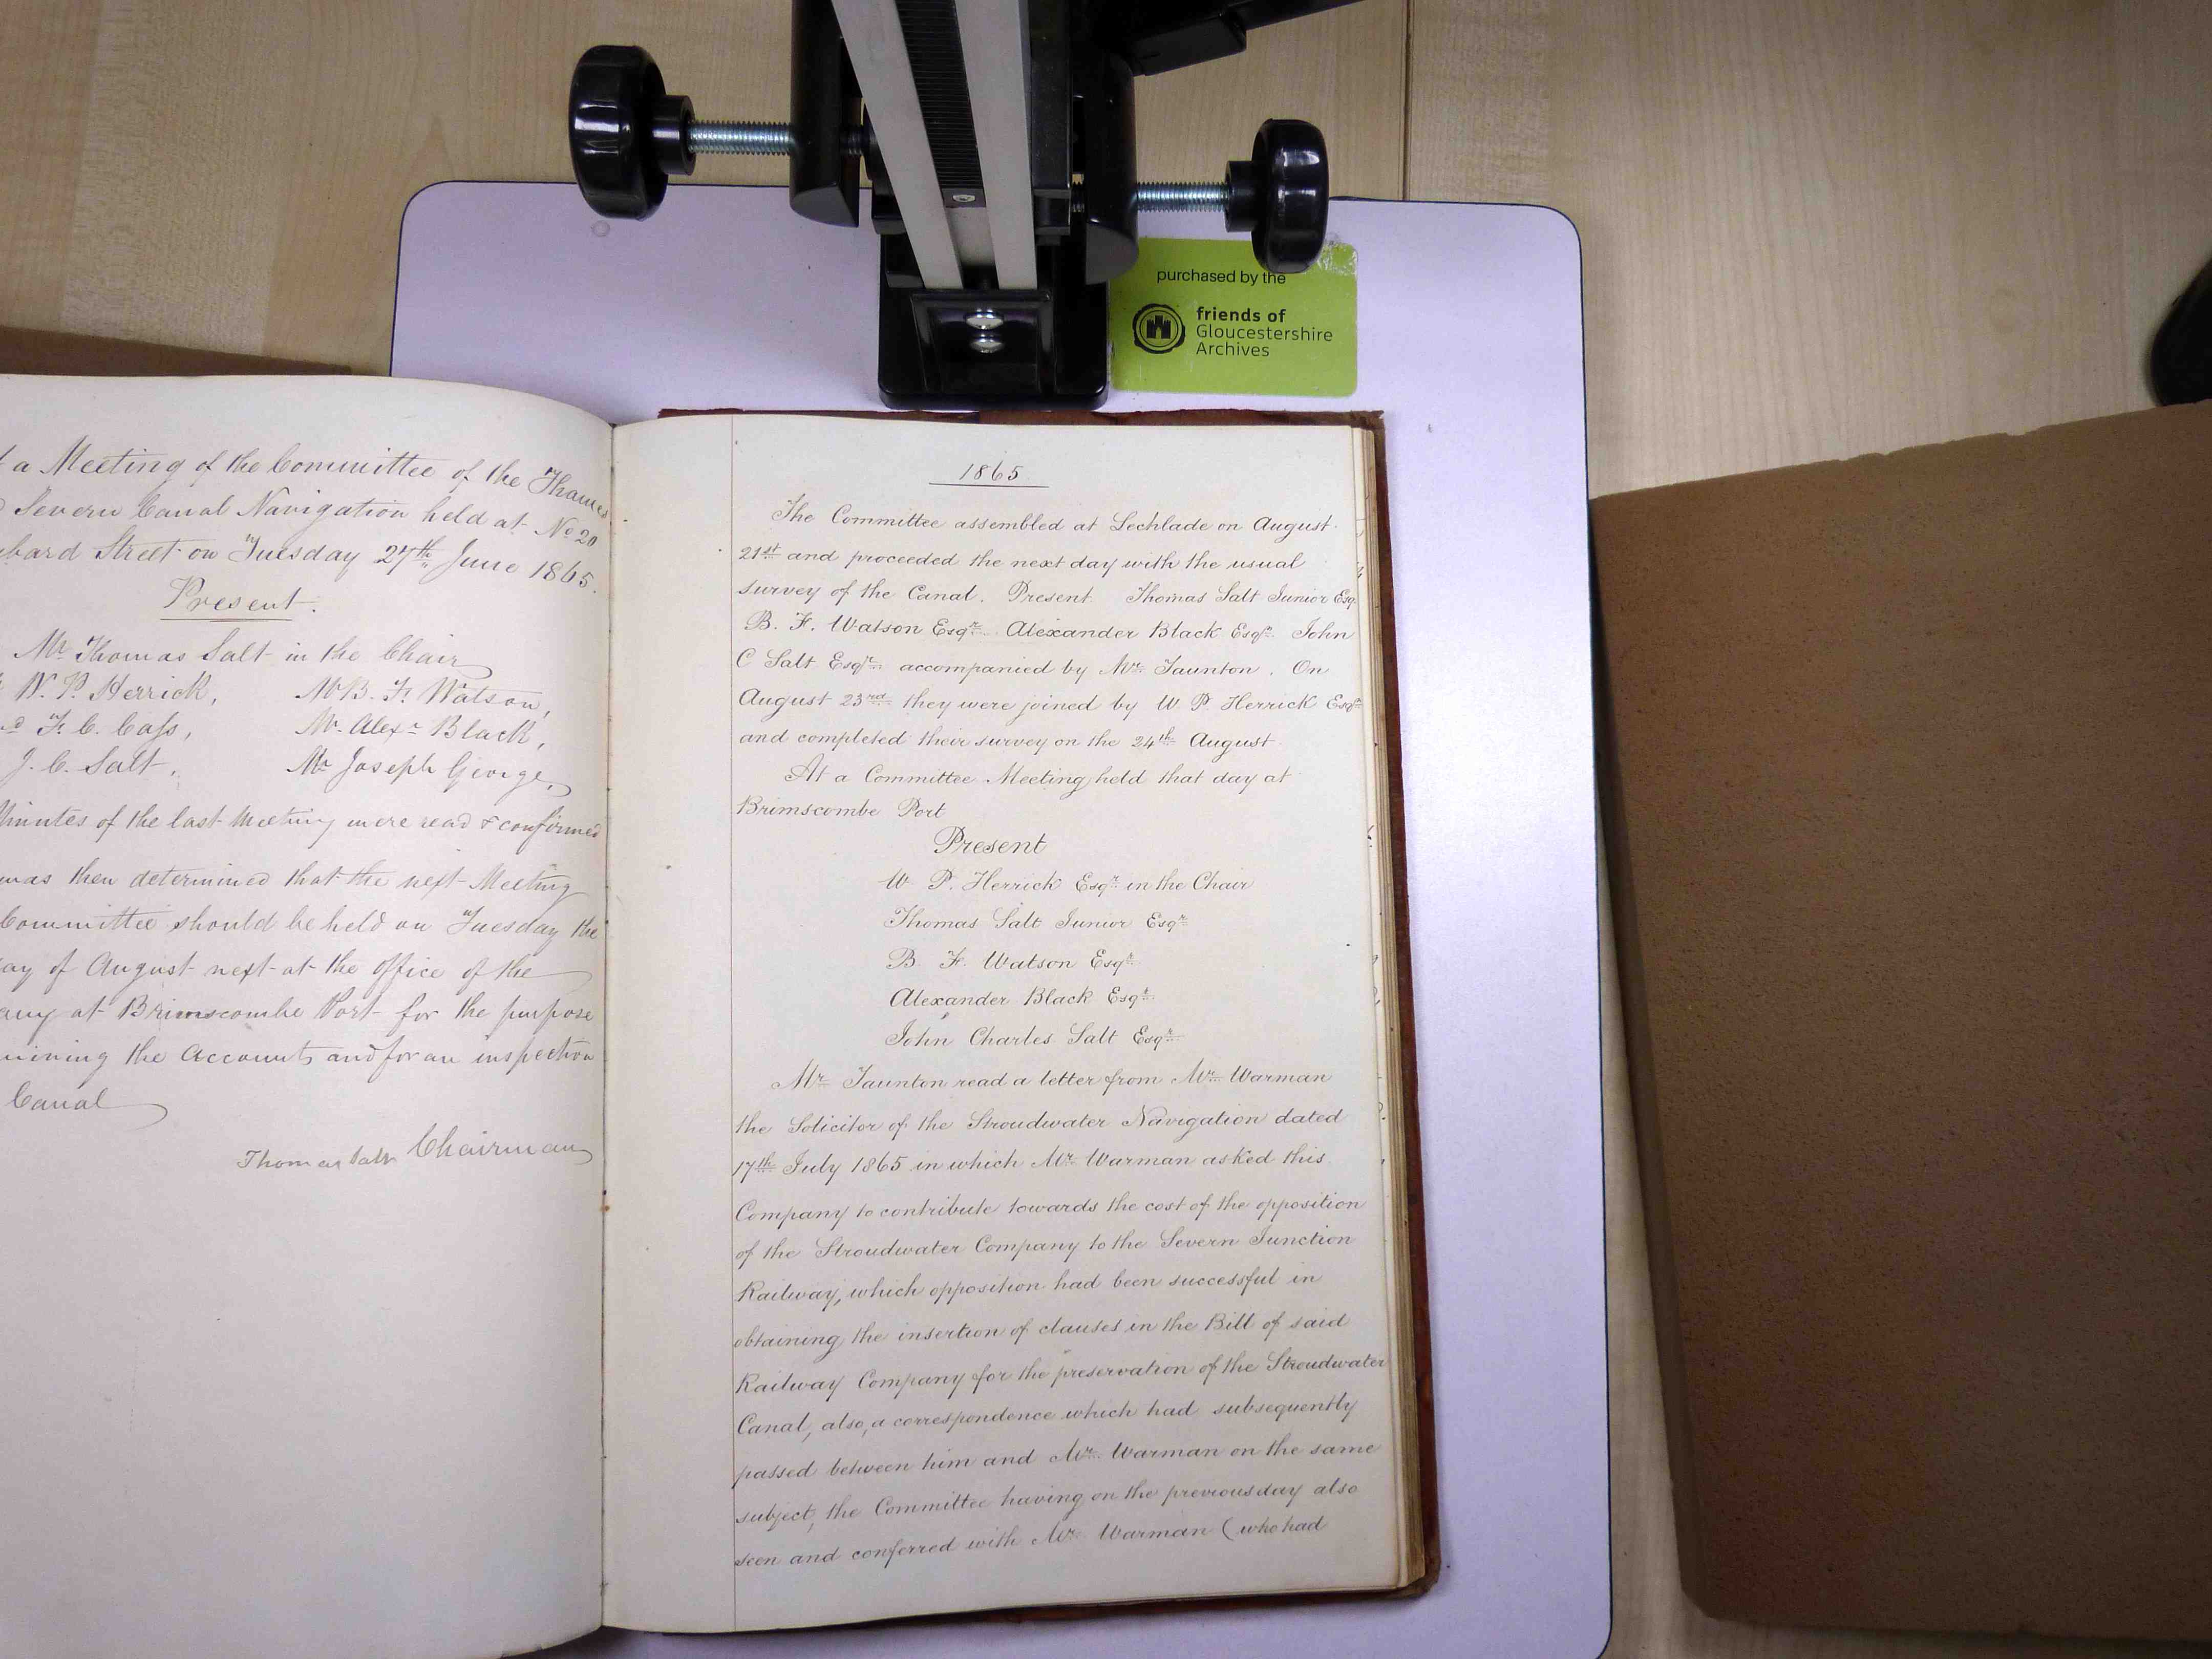 purchased by the
friends of
Gloucestershire
Archives
a Meeting of the Committee of the Thames
Severn Canal Navigation held at No 20
bard Street on Tuesday 27th June 1865.
Present.
Mr Thomas Salt in the Chair
W. P. Herrick, Mr B. F. Watson,
F. C. Cass, Mr. Alexr Black,
J. C. Salt, Mr Joseph George,
Minutes of the last Meeting were read & confirmed
was then determined that the next Meeting
Committee should be held on Tuesday the
ay of August next at the office of the
any at Brimscombe Port for the purpose
mining the Accounts and for an inspection
Canal
Thomas Salt Chairman
1865
The Committee assembled at Lechlade on August
21st and proceeded the next day with the usual
survey of the Canal. Present Thomas Salt Junior Esq
B. F. Watson Esqr. Alexander Black Esqr. John
C Salt Esqr. accompanied by Mr. Taunton. On
August 23rd they were joined by W P. Herrick Esqr
and completed their survey on the 24th August
At a Committee Meeting held that day at
Brimscombe Port
Present
W. P. Herrick Esqr. in the Chair
Thomas Salt Junior Esqr
B. F. Watson Esqr
Alexander Black Esqr.
John Charles Salt Esqr.
Mr Taunton read a letter from Mr. Warman
the Solicitor of the Stroudwater Navigation dated
17th July 1865 in which Mr. Warman asked this
Company to contribute towards the cost of the opposition
of the Stroudwater Company to the Severn Junction
Railway, which opposition had been successful in
obtaining the insertion of clauses in the Bill of said
Railway Company for the preservation of the Stroudwater
Canal, also, a correspondence which had subsequently
passed between him and Mr. Warman on the same
subject, the Committee having on the previous day also
seen and conferred with Mr. Warman (who had